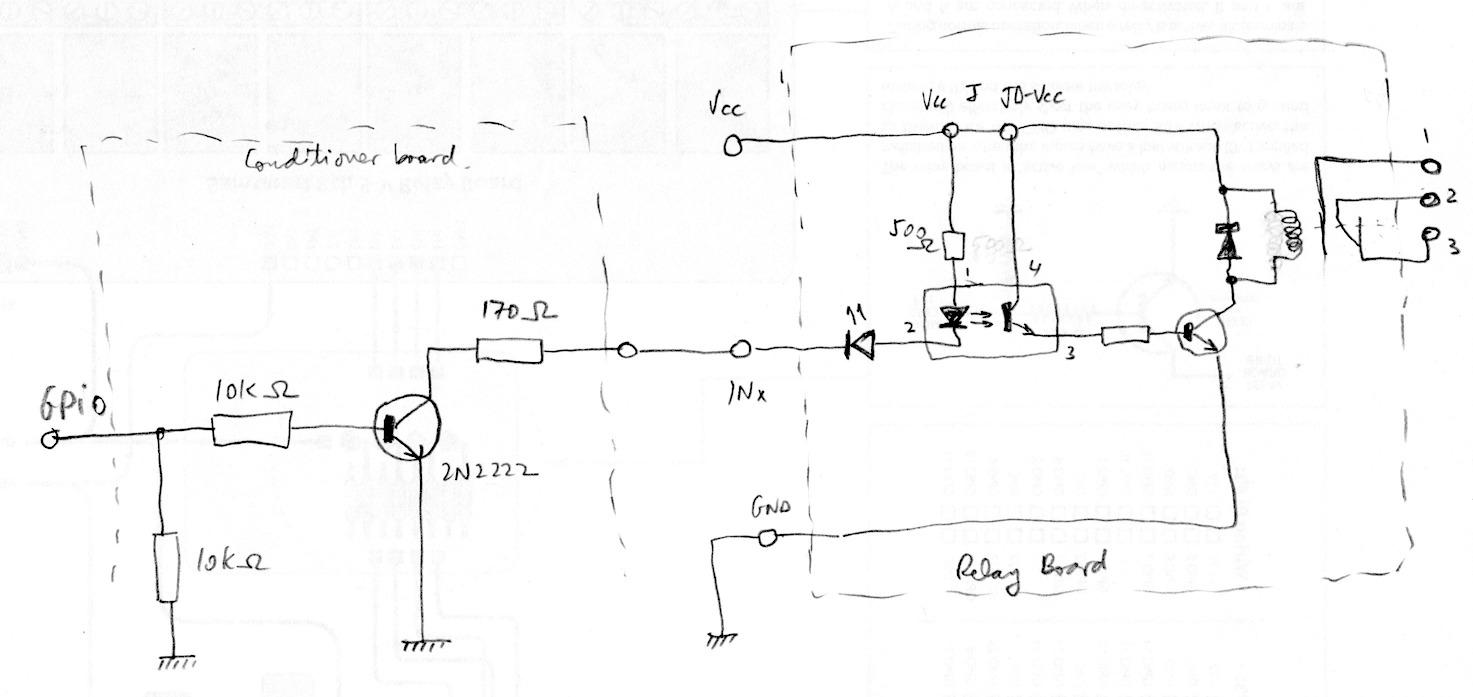 Conditioner board.
GPiO
10kΩ
10kΩ
170Ω
2N2222
Vcc
Vcc J JD-Vcc
500
Ω
1
4
2
3
11
INx
GND
Relay Board
1
2
3